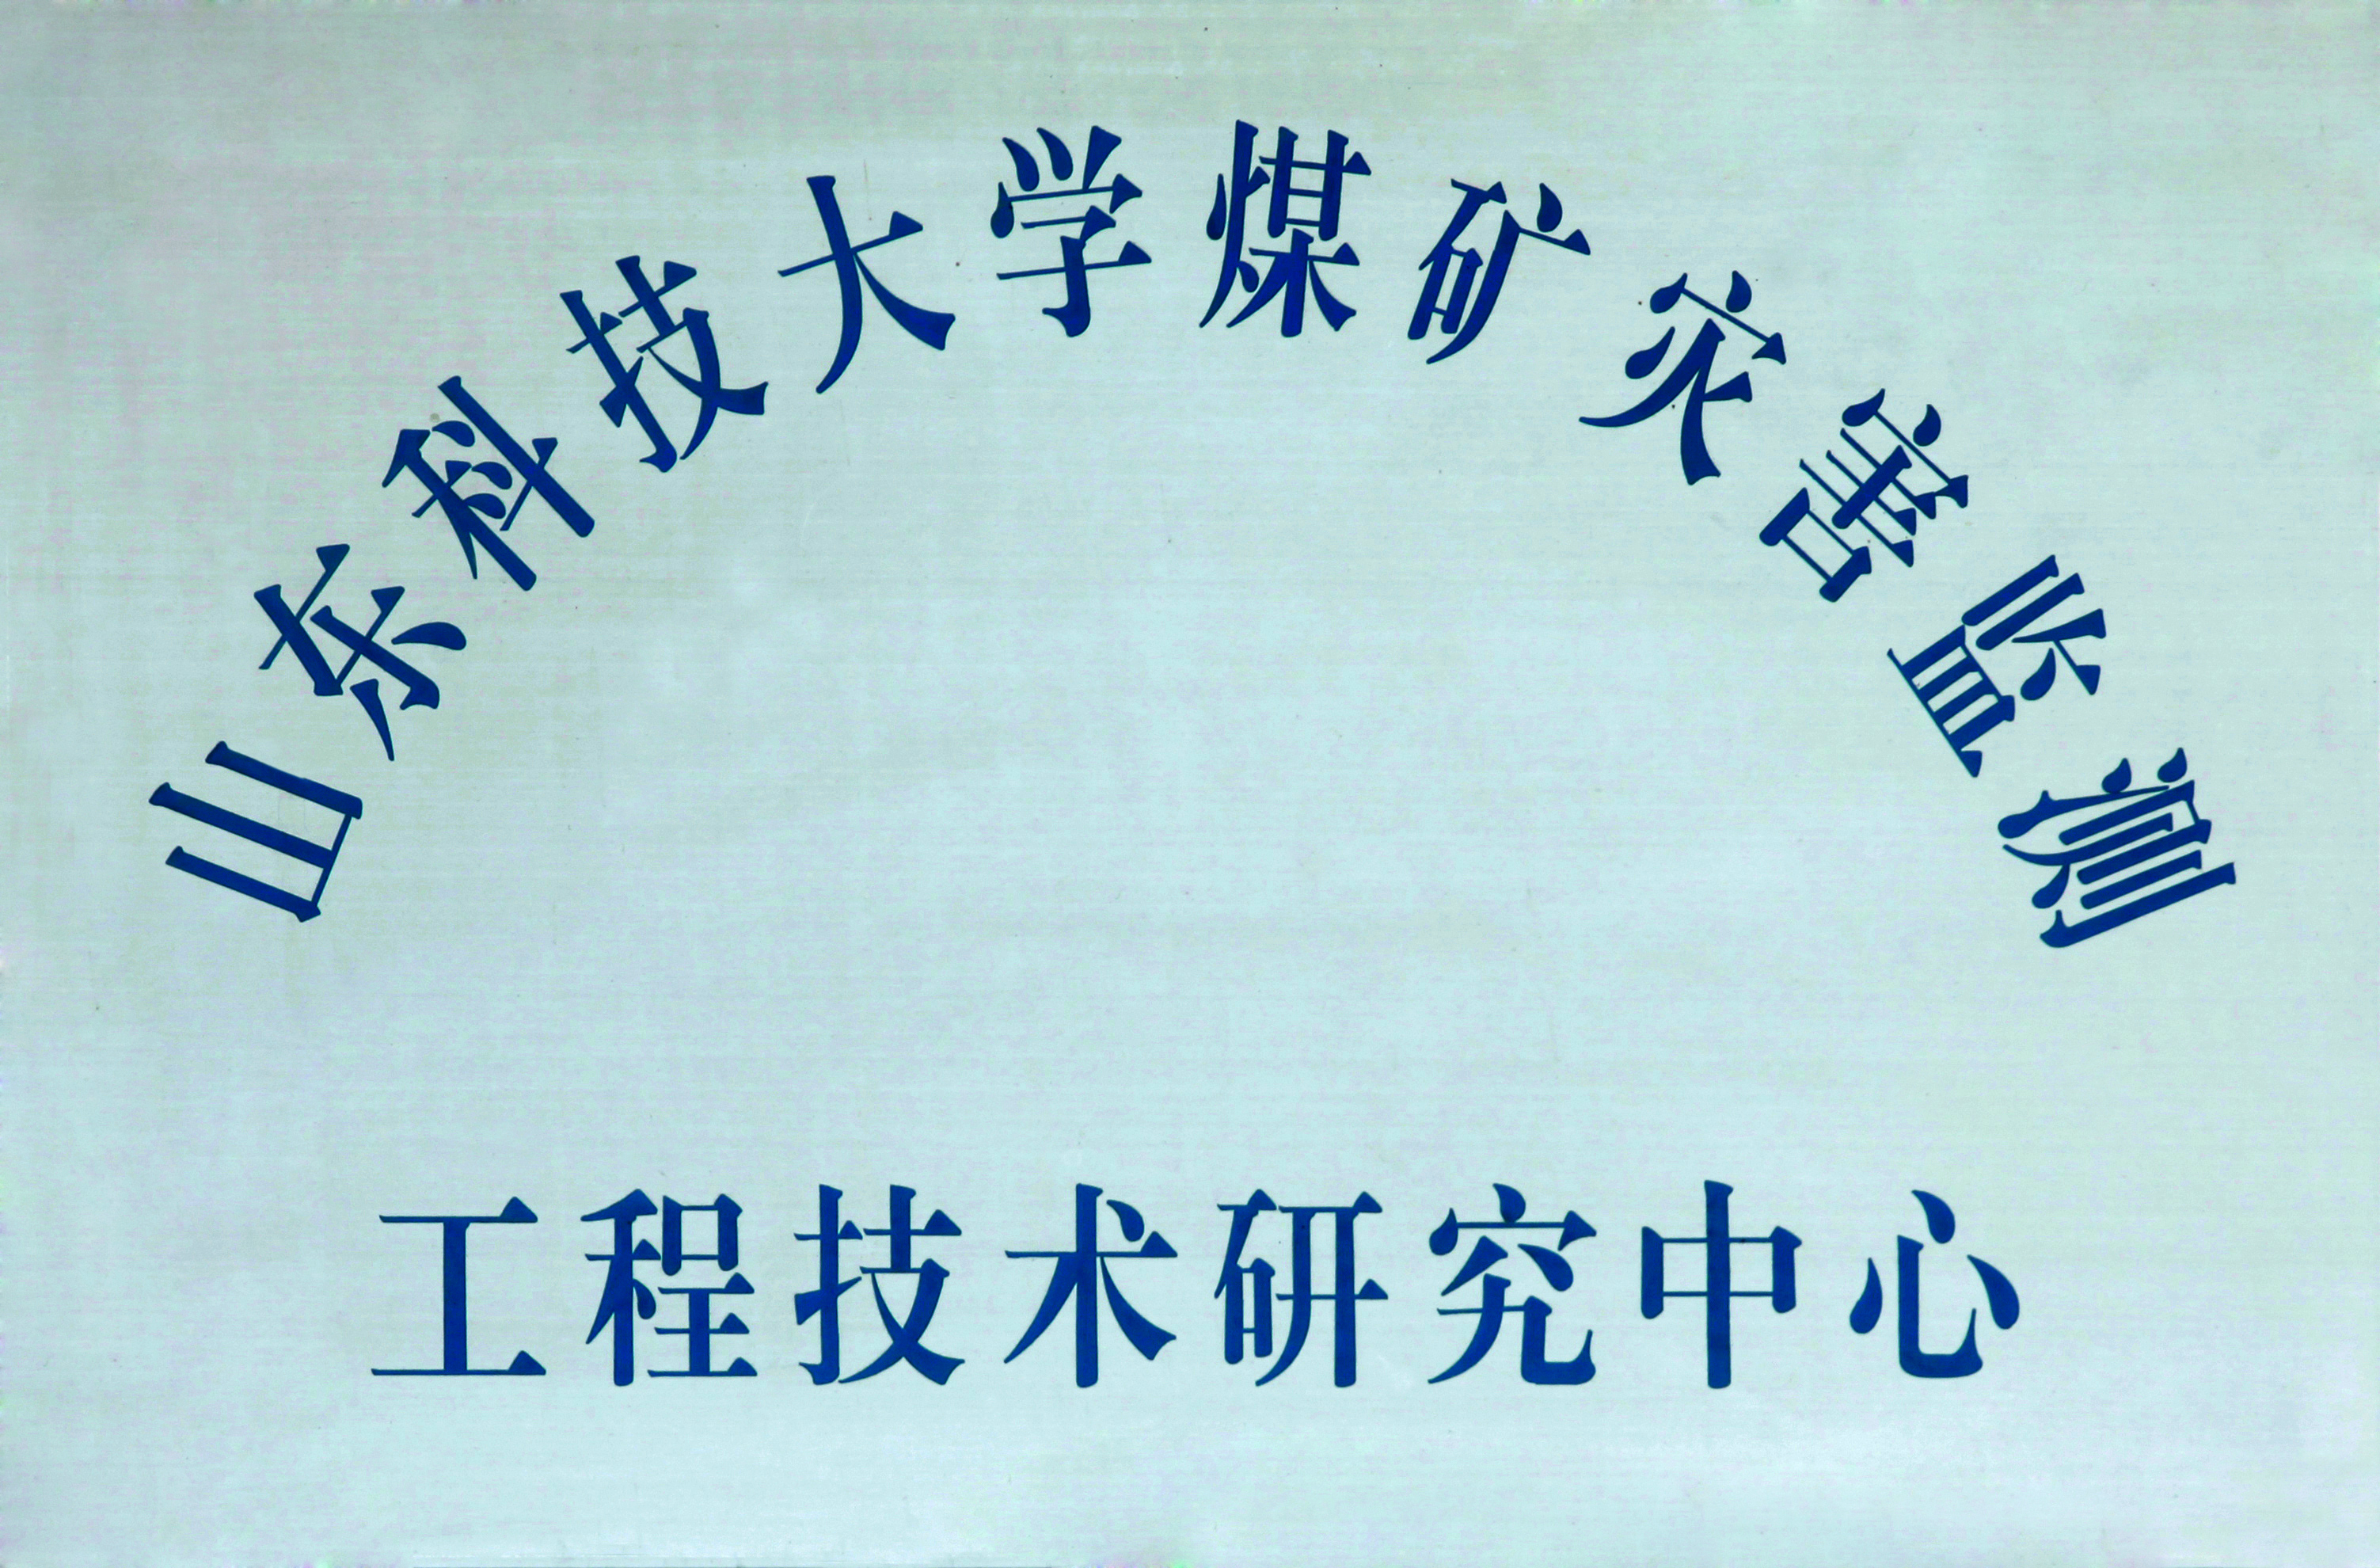 山东科技大学煤矿灾害监测
工程技术研究中心